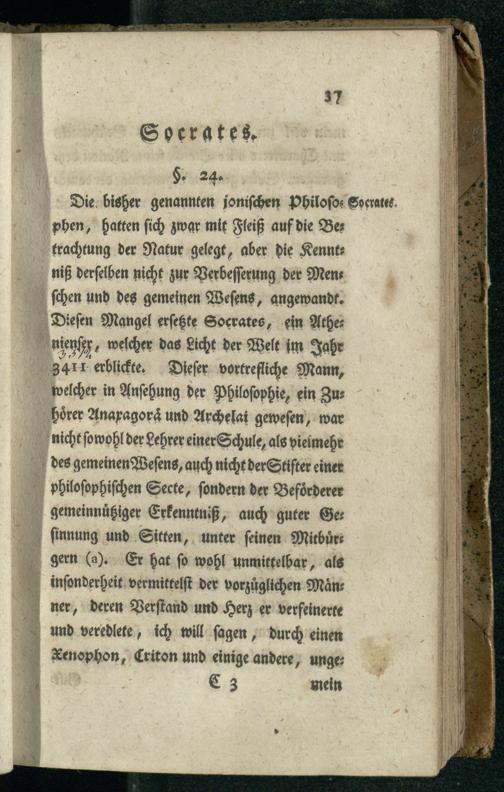 37
Socrates.
§. 24.
Die bisher genannten jonischen Philoso- Socrates.
phen, hatten sich zwar mit Fleiß auf die Be-
trachtung der Natur gelegt, aber die Kennt-
niß derselben nicht zur Verbesserung der Men-
schen und des gemeinen Wesens, angewandt.
Diesen Mangel ersetzte Socrates, ein Athe-
nienser, welcher das Licht der Welt im Jahr
3411 erblickte. Dieser vortrefliche Mann,
welcher in Ansehung der Philosophie, ein Zu-
hörer Anaxagorä und Archelai gewesen, war
nicht sowohl der Lehrer einer Schule, als vielmehr
des gemeinen Wesens, auch nicht der Stifter einer
philosophischen Secte, sondern der Beförderer
gemeinnütziger Erkenntniß, auch guter Ge-
sinnung und Sitten, unter seinen Mitbür-
gern (a). Er hat so wohl unmittelbar, als
insonderheit vermittelst der vorzüglichen Män-
ner, deren Verstand und Herz er verfeinerte
und veredlete, ich will sagen, durch einen
Xenophon, Criton und einige andere, unge-
C 3 mein